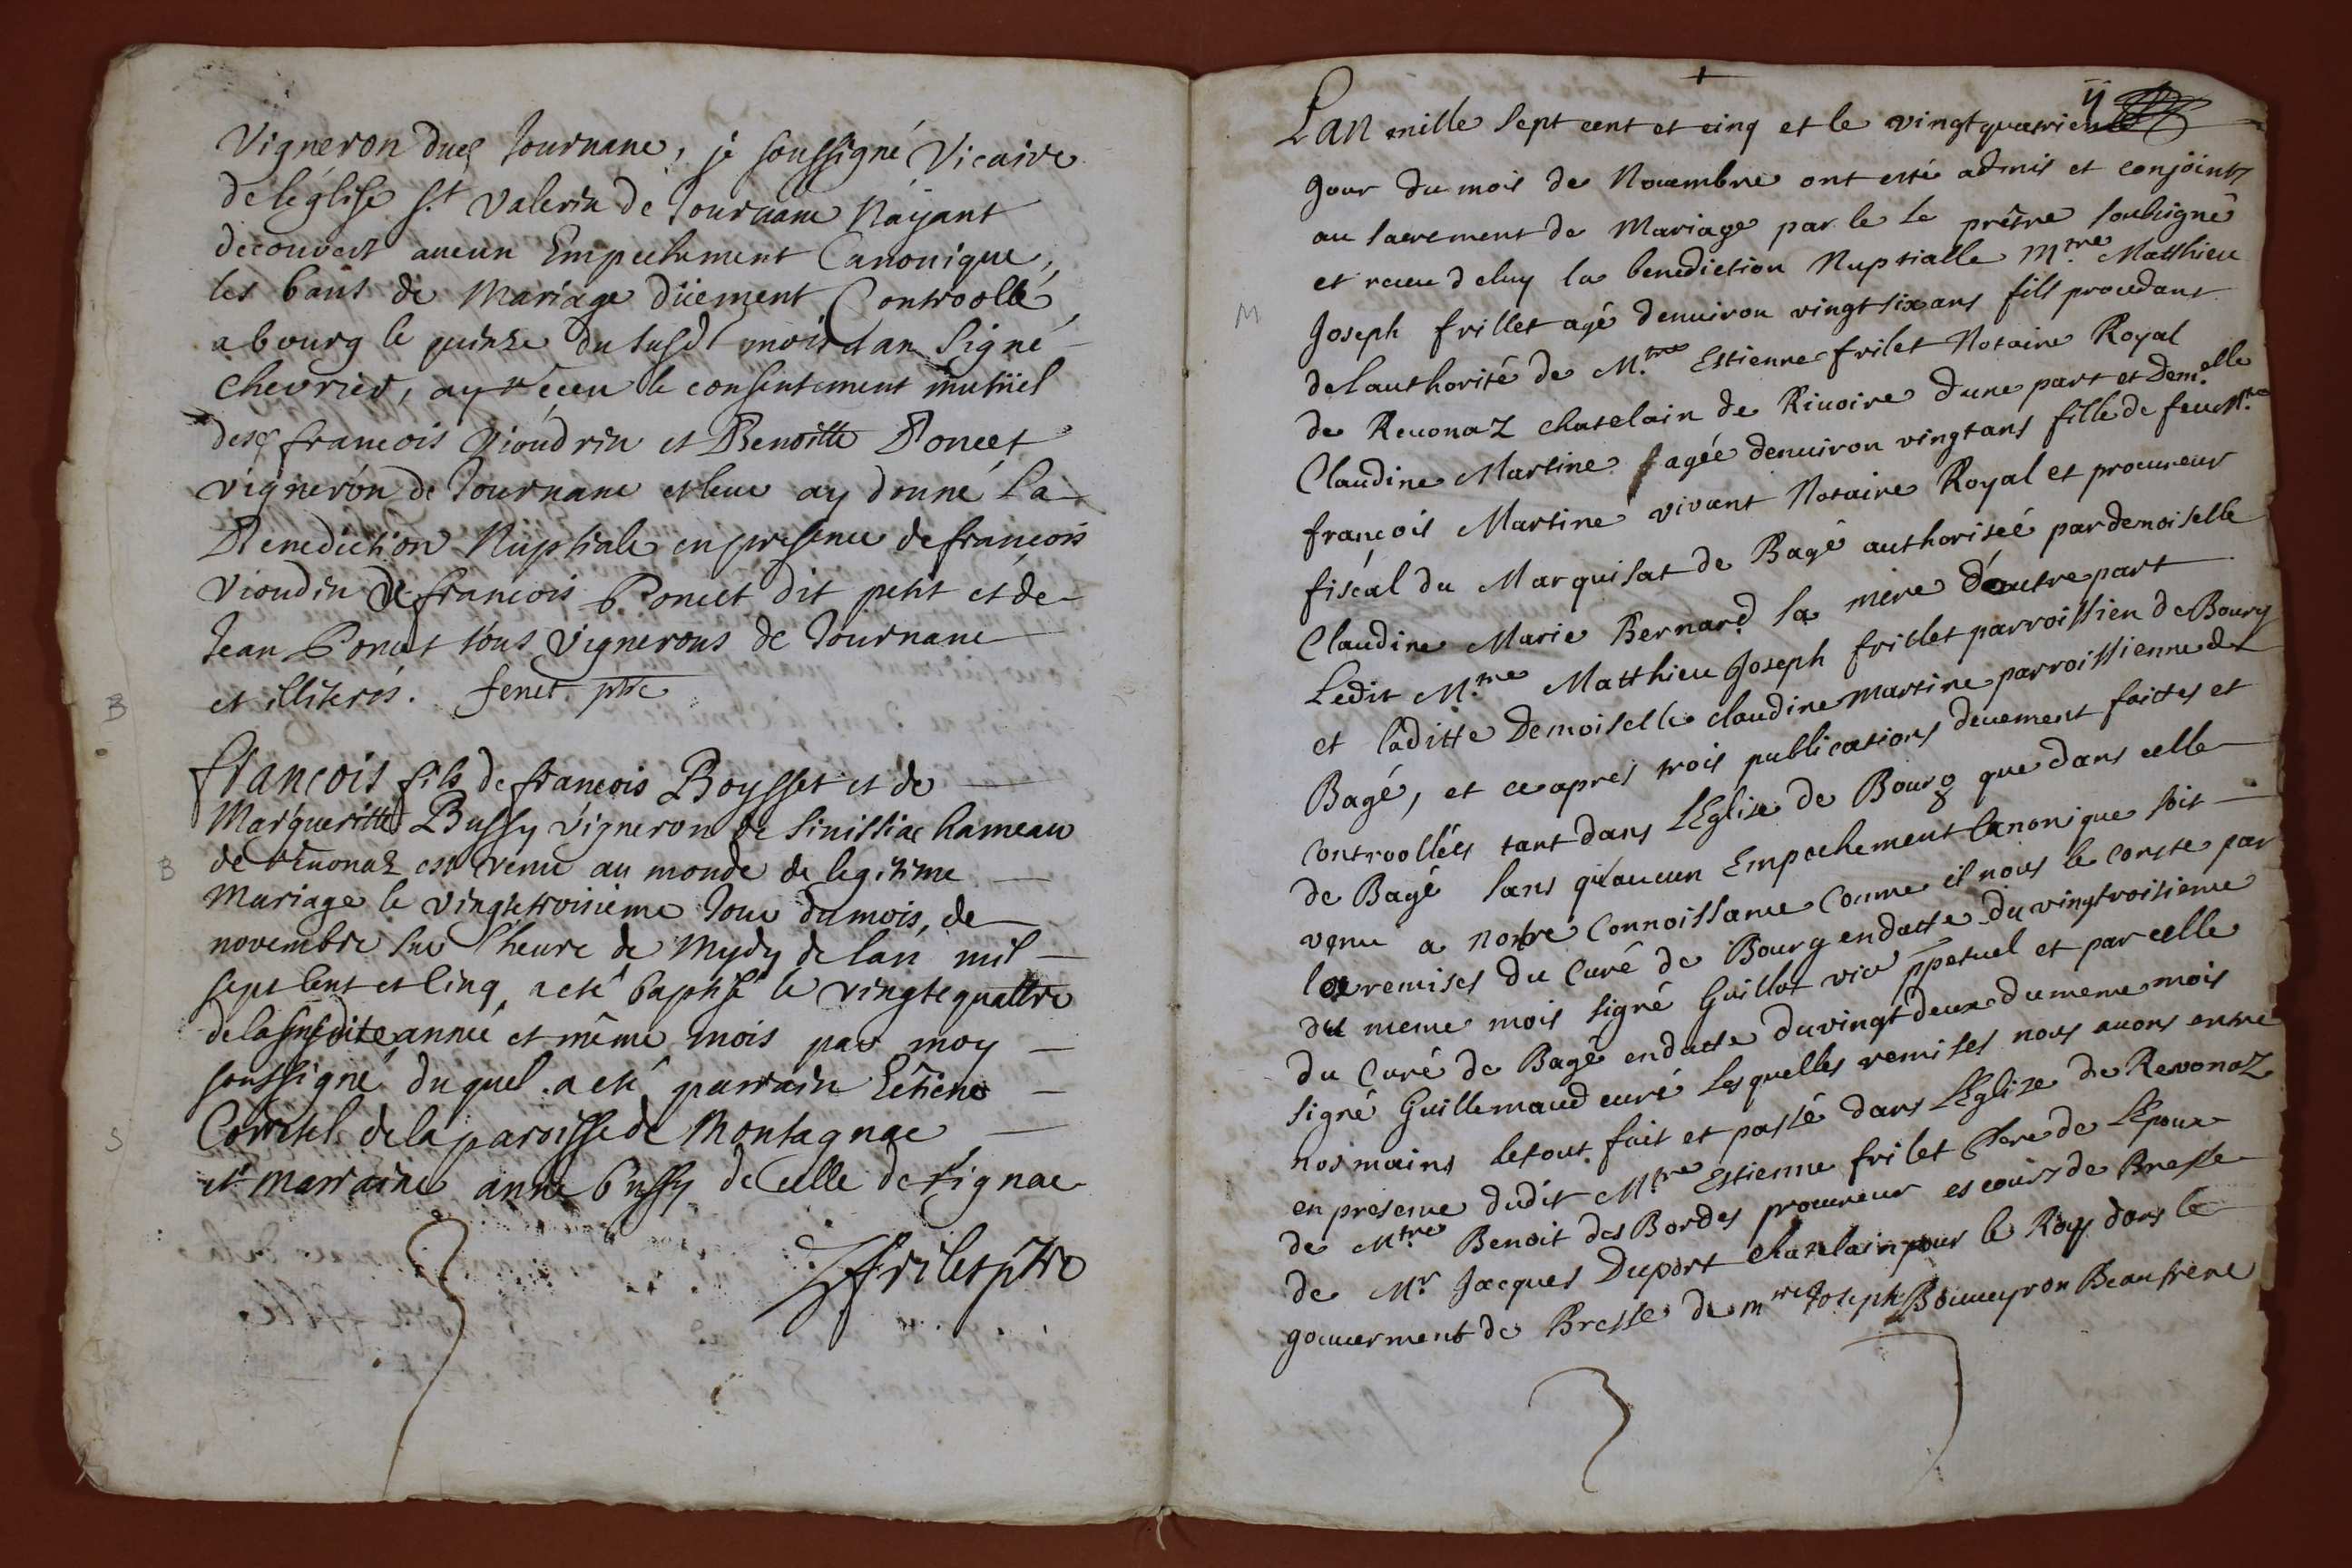 Vigneron dud Journane, je soussigné Vicaire
de léglise St Valerin de Journane N'ayant
decouvert aucun Empechement Canonique,
les bans de Mariage düement Controollé
a bourg le quinze du susdt mois et an Signé
chevrier, ay reçeu le consentement mutüel
desd francois Vioudrin et Benoitte Poncet
vigneron de Journane et leur ay donné La
Benediction Nuptiale en presence de francois
Vioudin de francois Poncet dit petit et de
Jean Poncet tous Vignerons de Journane
et illiterés. fenet ptre
B
francois fils de francois Boysset et de
Margueritte Bussy vigneron de Sinissiac hameau
B de revonaz est venu au monde de legitime
Mariage le vingtetroisieme Jour du mois, de
novembre sur l'heure de Mydy de lan mil
sept Cent et Cinq, a eté baptisé le vingtequattre
de la susdite annee et même mois par moy
soussigné duquel a eté parrain Etiene
S Corretel de la paroisse de Montagnac
et marraine anne bussy de Celle de rignac
frilet ptre
ij
Lan mille sept cent et cinq et le vingtquatrieme
Jour du mois de Nouembre ont esté admis et conjoints
au sacrement de Mariage par le Le prêtre soubsigné
et receu deluy la benediction Nuptialle M.tre Matthieu
M Joseph frillet agé denuiron vingtsix ans fils procedant
de lauthorité de M.tre Estienne frilet Notaire Royal
de Reuonaz chatelain de Riuoire dune part et Dem.elle
Claudine Martine agée denuiron vingtans fille de feu M.tre
françois Martine vivant Notaire Royal et procureur
fiscal du Marquisat de Bagé authoriseé par demoiselle
Claudine Marie Bernard sa mere d'autre part
Ledit M.tre Matthieu Joseph frillet parroissien de Bourg
et laditte Demoiselle claudine Martine parroissienne de
Bagé, et ce apres trois publications deuement faittes et
controollées tant dans LEglise de Bourg que dans celle
de Bagé sans qu'aucun Empechement Canonique soit
venu a Nostre Connoissance Comme il nous le conste par
les remises du Curé de Bourg en datte du vingtroisieme
du meme mois signé Guillot vic ppetuel et par celle
du Curé de Bagé en datte du vingt deux du meme mois
signé Guillemaud curé Lesquelles remises nous auons entre
nos mains Le tout fait et passé dans LEglise de Revonaz
en presence dudit M.tre Estienne frilet Pere de LEpoux
de M.tre Benoit des Bordes procureur es cours de Bresse
de Mr Jacques Duport Chatelain pour le Roy dans le
gouuerment de Bresse de m.tre Joseph Bouueyron Beaufrere